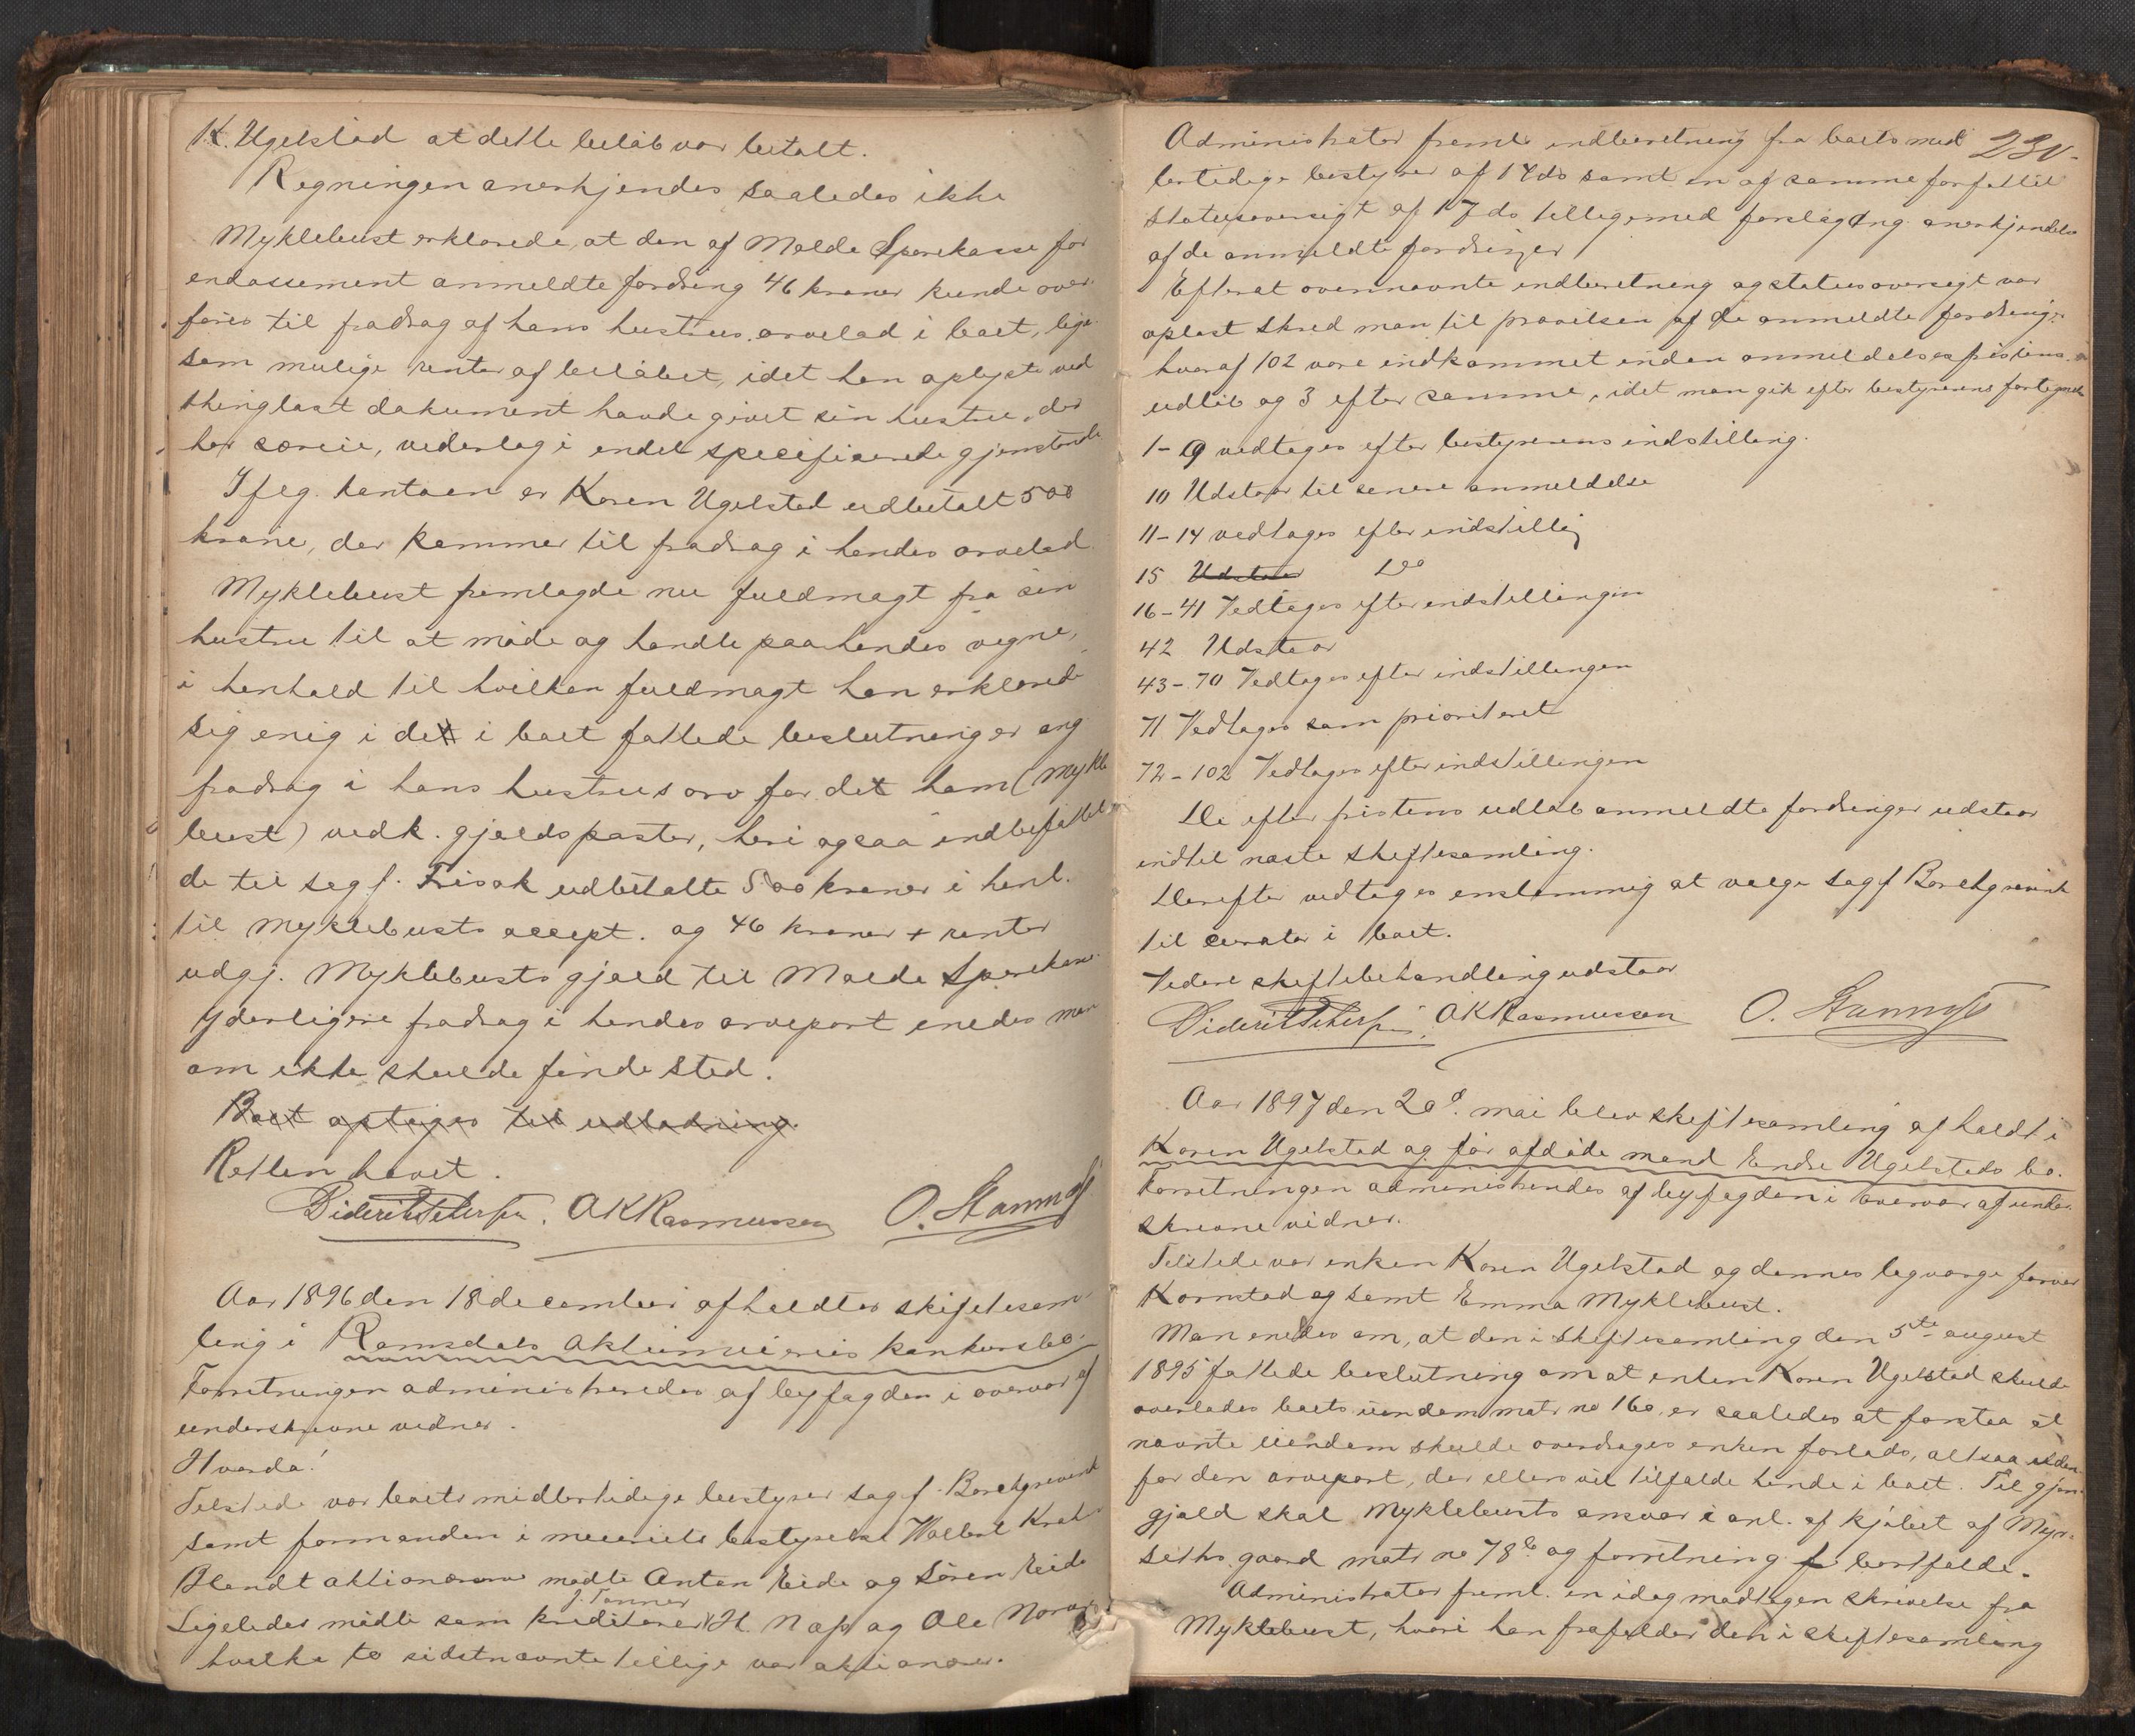 K. Ugelstad at dette beløb var betalt.
Regningen anerkjendes saaledes ikke
Myklebust erklærede, at den af Molde Sparekasse for
endossement anmeldte fordring 46 kroner kunde over-
føres til fradrag af hans hustrus arvelod i boet, lige-
som mulige renter af beløbet, idet han oplyste ved
thinglæst dokument havde givet sin hustru, der
har særeie, vederlag i endel specificerede gjenstande
Iflg. kontoen er Karen Ugelstad udbetalt 500
krone, der kommer til fradrag i hendes arvelod.
Myklebust fremlagde nu fuldmagt fra sin
hustru til at møde og handle paa hendes vegne,
i henhold til hvilken fuldmagt han erklærede
sig enig i de i boet fattede beslutninger ang
fradrag i hans hustrus arv for det ham (Mykle
bust) vedk. gjeldsposter, heri ogsaa indbefattet
de til sagf. Frisak udbetalte 500 kroner i henh.
til Myklebusts accept. og 46 kroner + renter
udgj. Myklebusts gjæld til Molde Sparekasse.
Yderligere fradrag i hendes arvepart enedes man
om ikke skulde finde sted.
Boet optages til udlodning.
Retten hævet.
Diderik Petersen. OKRasmussen O. Stannes
Aar 1896 den 18 december afholdtes skiftesam-
ling i Romsdals Aktiemeieris konkursbo.
Forretningen administreredes af byfogden i overvær af
underskrevne vidner.
Hvorda!
Tilstede var boets midlertidige bestyrer sagf. Borchgrevink
samt formanden i meieriets bestyrelse
Blandt aktionærerne mødte Anton Eide og Søren Eide
J. Tanner
Ligeledes mødte som kreditorer H. og Ole
hvilke to sidstnævnte tillige var aktionærer.
Administrator freml. indberetning fra boets mid 230.
lertidige bestyrer af 14 ds samt en af samme forfattet
statusoversigt af 17 ds tilligemed forslag ang. anerkjendelse
af de anmeldte fordringer
Efterat ovennævnte indberetning og statusoversigt var
oplæst skred man til prøvelsen af de anmeldte fordringer
hvoraf 102 vare indkommet inden anmeldelsesfristens
udløb og 3 efter samme, idet man gik efter bestyrerens fortegnelse
1-9 vedtages efter bestyrerens indstilling.
10 Udstaar til senere anmeldelse
11-14 vedtages efter indstillig
15 Udstaar Do
16-41 Vedtages efter indstillingen
42 Udstaar
43-70 Vedtages efter indstillingen
71 Vedtages som prioriteret
72-102 Vedtages efter indstillingen
De efter fristens udløb anmeldte fordringer udstaar
indtil næste skiftesamling.
Derefter vedtages enstemmig at vælge sagf Borchgrevink
til curator i boet.
Videre skiftebehandling udstaar
Diderik Petersen. OKRasmussen O. Stannes
Aar 1897 den 20de mai blev skiftesamling afholdt i
Karen Ugelstad og før afdøde mand Endre Ugelstads bo.
Forretningen administreredes af byfogden i overvær af under-
skrevne vidner.
Tilstede var enken Karen Ugelstad og dennes lagværge
Kornstad og samt Emma Myklebust.
Man enedes om, at den i skiftesamling den 5te august
1895 fattede beslutning om at enken Karen Ugelstad skulde
overlades boets eiendom matr no 160, er saaledes at forstaa at
nævnte eiendom skulde overdrages enken forlods, altsaa uden-
for den arvepart, der ellers vil tilfalde hende i boet. Til gjen-
gjæld skal Myklebusts ansvar i anl. af kjøbet af
gaard matr no 78b og forretning bortfalde.
Administrator freml. en idag modtagen skrivelse fra
Myklebust, hvori han frafalder den i skiftesamling